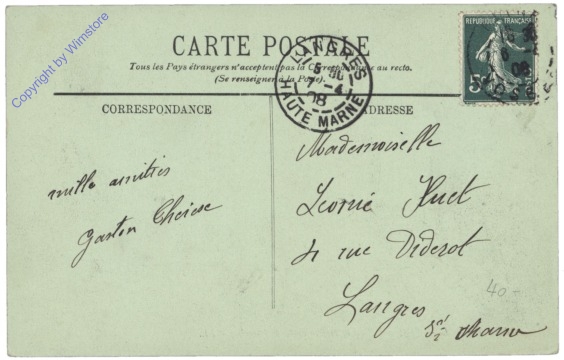 Copyright by Wimstore
CARTE POSTALE
Tous les Pays étrangers n'acceptent pas la Correspondance au recto.
(Se renseigner à la Poste).
REPUBLIQUE FRANÇAISE
5c
LANGRES
5
7 - 4
08
HAUTE MARNE
CORRESPONDANCE
ADRESSE
mille amitiés
Gaston
Mademoiselle
Léonie Huet
4 rue Diderot
Langres
Hte Marne
40-